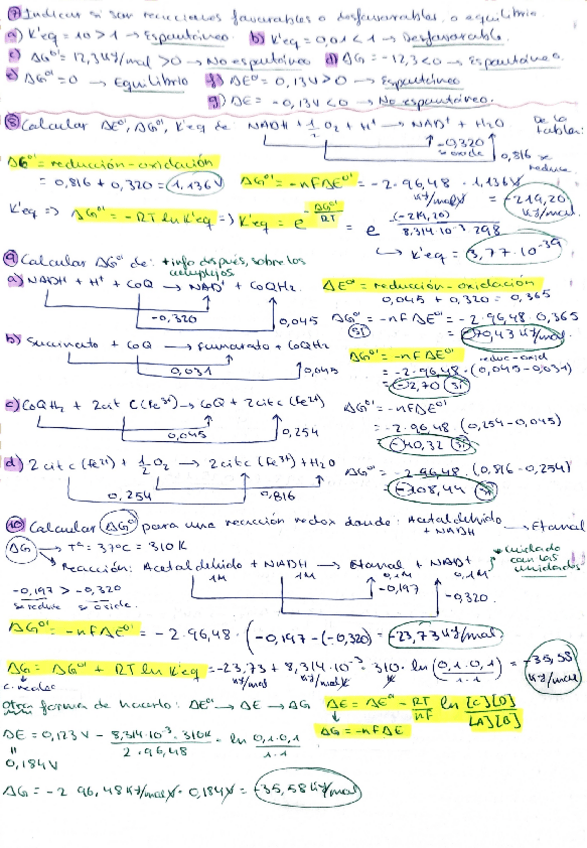 ⑦ Indicar si son reacciones favorables o desfavorables, o equilibrio.
a) K'eq = 10 > 1 → Espontáneo. b) K'eq = 0,01 < 1 → Desfavorable.
c) ΔG⁰' = 12,3 kJ/mol > 0 → No espontáneo d) ΔG = -12,3 < 0 → Espontáneo.
e) ΔG⁰' = 0 → Equilibrio f) ΔE⁰' = 0,13V > 0 → Espontáneo
g) ΔE = -0,13V < 0 → No espontáneo.
⑧ Calcular ΔE⁰', ΔG⁰', K'eq de: NADH + 1/2 O₂ + H⁺ → NAD⁺ + H₂O
De la tabla:
-0,320 se oxida
0,816 se reduce
ΔG⁰' = reducción - oxidación
= 0,816 + 0,320 = 1,136V ΔG⁰' = -nFΔE⁰' = -2 · 96,48 · 1,136V = -219,20 kJ/mol.
K'eq => ΔG⁰' = -RT ln K'eq => K'eq = e^(-ΔG⁰'/RT) = e^((-219,20)/(8,314·10⁻³ · 298))
↳ K'eq = 3,77·10⁻³⁹
⑨ Calcular ΔG⁰' de: + info después, sobre los complejos
a) NADH + H⁺ + CoQ → NAD⁺ + CoQH₂. ΔE⁰' = reducción - oxidación
0,045 + 0,320 = 0,365
-0,320 0,045 ΔG⁰' = -nFΔE⁰' = -2 · 96,48 · 0,365
SI = -70,43 kJ/mol
b) Succinato + CoQ → Fumarato + CoQH₂ ΔG⁰' = -nFΔE⁰' reduc-oxid
0,031 0,045 = -2 · 96,48 · (0,045 - 0,031)
= -2,70 SI
c) CoQH₂ + 2cit c (Fe³⁺) → CoQ + 2cit c (Fe²⁺) ΔG⁰' = -nFΔE⁰'
0,045 0,254 = -2 · 96,48 · (0,254 - 0,045)
= -40,32 SI
d) 2cit c (Fe²⁺) + 1/2 O₂ → 2cit c (Fe³⁺) + H₂O ΔG⁰' = -2 · 96,48 · (0,816 - 0,254)
0,254 0,816 = -108,44 SI
⑩ Calcular ΔG⁰' para una reacción redox donde: Acetaldehído + NADH → Etanol
ΔG → Tª = 37ºC = 310 K
Cuidado con las unidades
Reacción: Acetaldehído + NADH → Etanol + NAD⁺
1M 1M 0,1M 0,1M
-0,197 > -0,320 -0,197
se reduce se oxida -0,320.
ΔG⁰' = -nFΔE⁰' = -2 · 96,48 · (-0,197 - (-0,320) = -23,73 kJ/mol
ΔG = ΔG⁰' + RT ln K'eq = -23,73 + 8,314·10⁻³ · 310 · ln (0,1·0,1 / 1·1) = -35,58 kJ/mol
kJ/mol kJ/molK K
Otra forma de hacerlo: ΔE⁰' → ΔE → ΔG ΔE = ΔE⁰' - RT/nF ln [C][D]/[A][B]
ΔG = -nFΔE
ΔE = 0,123 V - 8,314·10⁻³ · 310K / 2 · 96,48 · ln 0,1·0,1 / 1·1
"
0,184V
ΔG = -2 · 96,48 kJ/molV · 0,184V = -35,58 kJ/mol